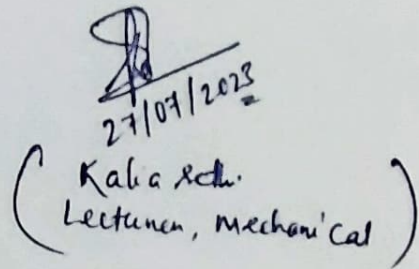 27/07/2023
(Kalia
Lecturer, Mechanical)